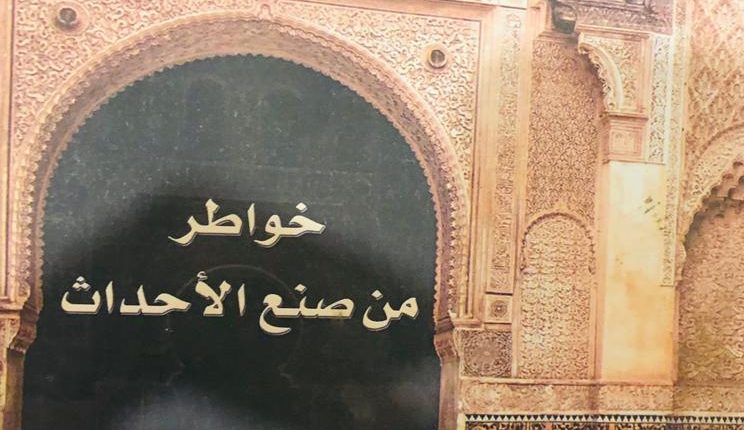 خواطر
من صنع الأحداث